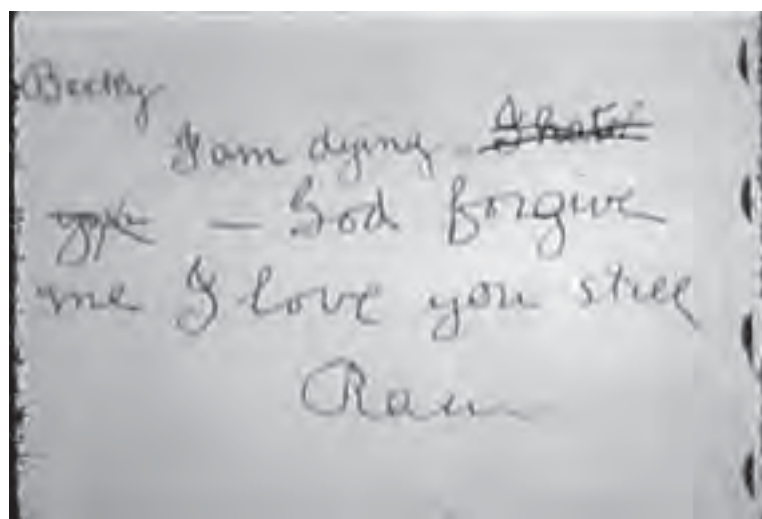 Becky
I am dying I hate
you — God forgive
me I love you still
Raw